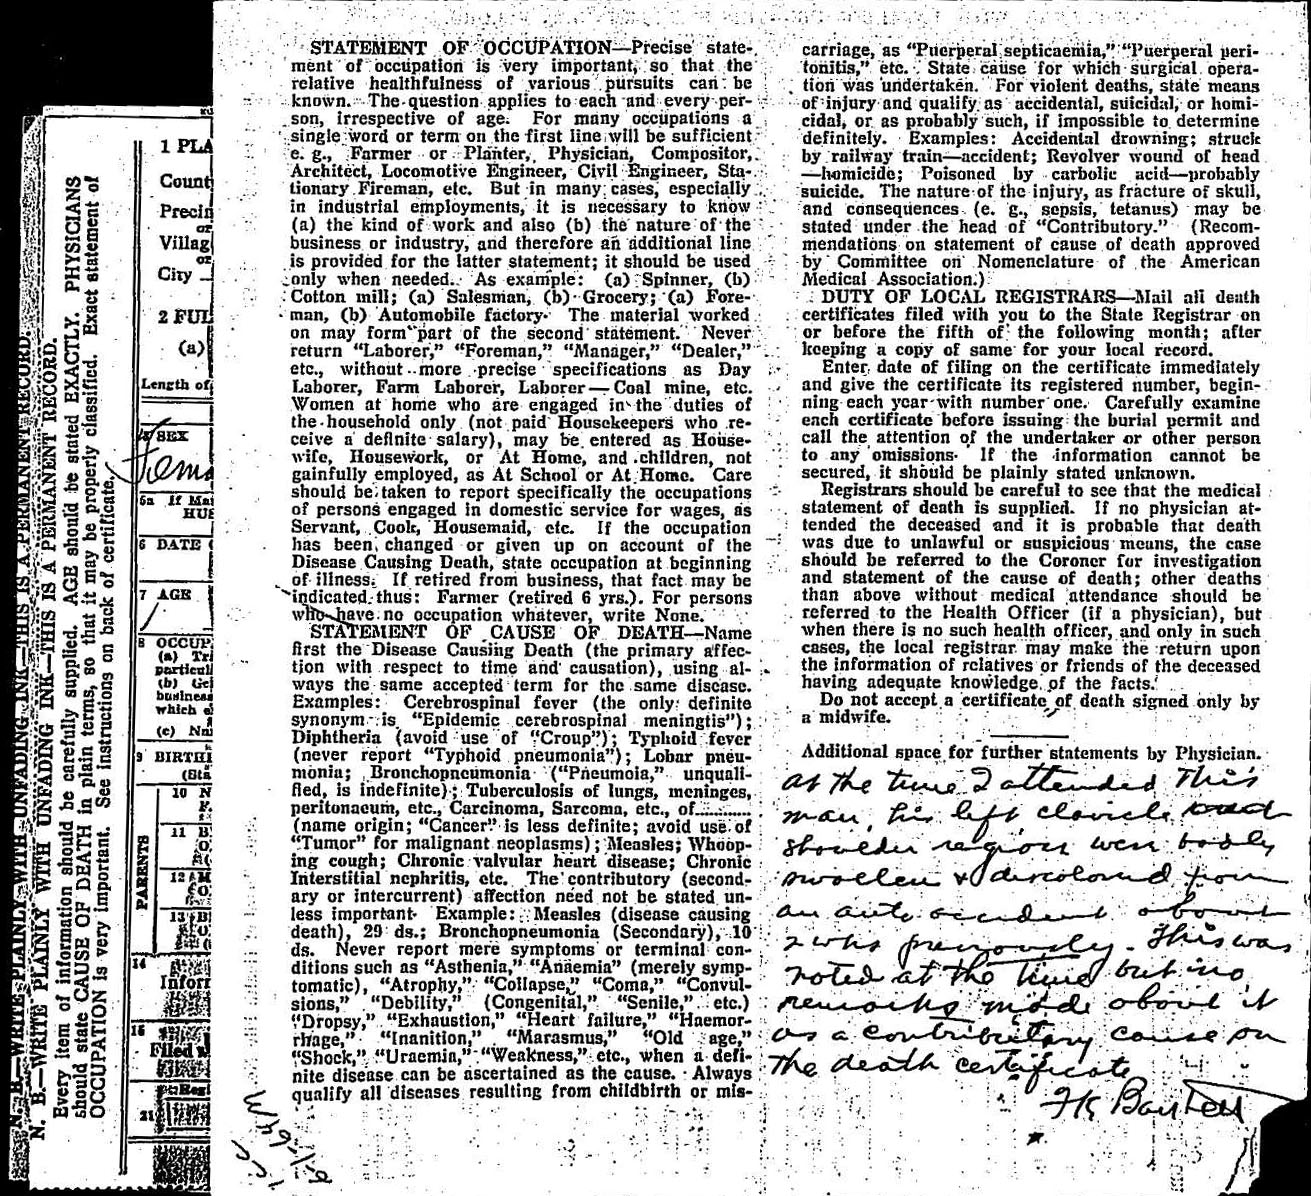 N. B.—WRITE PLAINLY WITH UNFADING INK—THIS IS A PERMANENT RECORD.
N. B.—WRITE PLAINLY WITH UNFADING INK—THIS IS A PERMANENT RECORD.
Every item of information should be carefully supplied. AGE should be stated EXACTLY. PHYSICIANS
should state CAUSE OF DEATH in plain terms, so that it may be properly classified. Exact statement of
OCCUPATION is very important. See instructions on back of certificate.
1 PLA
Count
Precin
or
Villag
or
City
2 FUL
(a)
Length of
SEX
Fema
5a If Ma
HUS
6 DATE
7 AGE
1
8 OCCUP
(a) Tr
particul
(b) Ge
business
which e
(c) Na
9 BIRTH
(Sta
PARENTS
10 N
11 B
O
12 M
O
13 B
O
14
Inform
15
Filed
Regi
21
STATEMENT OF OCCUPATION—Precise state-
ment of occupation is very important, so that the
relative healthfulness of various pursuits can be
known. The question applies to each and every per-
son, irrespective of age. For many occupations a
single word or term on the first line will be sufficient
e. g., Farmer or Planter, Physician, Compositor,
Architect, Locomotive Engineer, Civil Engineer, Sta-
tionary Fireman, etc. But in many cases, especially
in industrial employments, it is necessary to know
(a) the kind of work and also (b) the nature of the
business or industry, and therefore an additional line
is provided for the latter statement; it should be used
only when needed. As example: (a) Spinner, (b)
Cotton mill; (a) Salesman, (b) Grocery; (a) Fore-
man, (b) Automobile factory. The material worked
on may form part of the second statement. Never
return "Laborer," "Foreman," "Manager," "Dealer,"
etc., without more precise specifications as Day
Laborer, Farm Laborer, Laborer—Coal mine, etc.
Women at home who are engaged in the duties of
the household only (not paid Housekeepers who re-
ceive a definite salary), may be entered as House-
wife, Housework, or At Home, and children, not
gainfully employed, as At School or At Home. Care
should be taken to report specifically the occupations
of persons engaged in domestic service for wages, as
Servant, Cook, Housemaid, etc. If the occupation
has been changed or given up on account of the
Disease Causing Death, state occupation at beginning
of illness. If retired from business, that fact may be
indicated thus: Farmer (retired 6 yrs.). For persons
who have no occupation whatever, write None.
STATEMENT OF CAUSE OF DEATH—Name
first the Disease Causing Death (the primary affec-
tion with respect to time and causation), using al-
ways the same accepted term for the same disease.
Examples: Cerebrospinal fever (the only definite
synonym is "Epidemic cerebrospinal meningtis");
Diphtheria (avoid use of "Croup"); Typhoid fever
(never report "Typhoid pneumonia"); Lobar pneu-
monia; Bronchopneumonia ("Pneumoia," unquali-
fied, is indefinite); Tuberculosis of lungs, meninges,
peritonaeum, etc., Carcinoma, Sarcoma, etc., of............
(name origin; "Cancer" is less definite; avoid use of
"Tumor" for malignant neoplasms); Measles; Whoop-
ing cough; Chronic valvular heart disease; Chronic
Interstitial nephritis, etc. The contributory (second-
ary or intercurrent) affection need not be stated un-
less important. Example: Measles (disease causing
death), 29 ds.; Bronchopneumonia (Secondary), 10
ds. Never report mere symptoms or terminal con-
ditions such as "Asthenia," "Anaemia" (merely symp-
tomatic), "Atrophy," "Collapse," "Coma," "Convul-
sions," "Debility," (Congenital," "Senile," etc.)
"Dropsy," "Exhaustion," "Heart failure," "Haemor-
rhage," "Inanition," "Marasmus," "Old age,"
"Shock," "Uraemia," "Weakness," etc., when a defi-
nite disease can be ascertained as the cause. Always
qualify all diseases resulting from childbirth or mis-
carriage, as "Puerperal septicaemia," "Puerperal peri-
tonitis," etc. State cause for which surgical opera-
tion was undertaken. For violent deaths, state means
of injury and qualify as accidental, suicidal, or homi-
cidal, or as probably such, if impossible to determine
definitely. Examples: Accidental drowning; struck
by railway train—accident; Revolver wound of head
—homicide; Poisoned by carbolic acid—probably
suicide. The nature of the injury, as fracture of skull,
and consequences (e. g., sepsis, tetanus) may be
stated under the head of "Contributory." (Recom-
mendations on statement of cause of death approved
by Committee on Nomenclature of the American
Medical Association.)
DUTY OF LOCAL REGISTRARS—Mail all death
certificates filed with you to the State Registrar on
or before the fifth of the following month; after
keeping a copy of same for your local record.
Enter date of filing on the certificate immediately
and give the certificate its registered number, begin-
ning each year with number one. Carefully examine
each certificate before issuing the burial permit and
call the attention of the undertaker or other person
to any omissions. If the information cannot be
secured, it should be plainly stated unknown.
Registrars should be careful to see that the medical
statement of death is supplied. If no physician at-
tended the deceased and it is probable that death
was due to unlawful or suspicious means, the case
should be referred to the Coroner for investigation
and statement of the cause of death; other deaths
than above without medical attendance should be
referred to the Health Officer (if a physician), but
when there is no such health officer, and only in such
cases, the local registrar may make the return upon
the information of relatives or friends of the deceased
having adequate knowledge of the facts.
Do not accept a certificate of death signed only by
a midwife.
Additional space for further statements by Physician.
At the time I attended this
man, his left clavicle and
shoulder region were badly
swollen & discolored from
an auto accident about
2 wks previously. This was
noted at the time but no
remarks made about it
as a contributory cause on
the death certificate